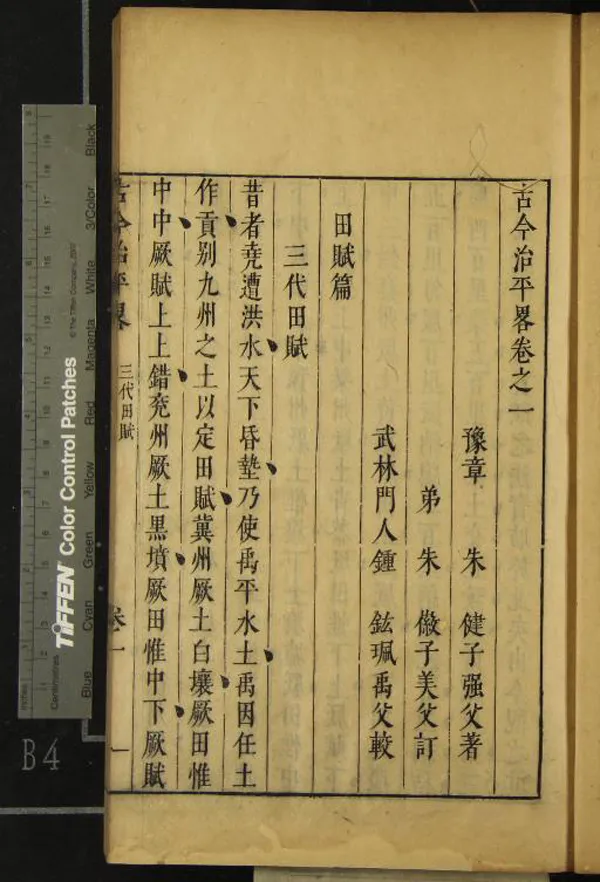 古今治平畧卷之一
豫章 朱 健子强父著
弟 朱 徽子美父訂
武林門人鍾 鉉珮禹父較
田賦篇
三代田賦
昔者堯遭洪水天下昏墊乃使禹平水土禹因任土
作貢别九州之土以定田賦冀州厥土白壤厥田惟
中中厥賦上上錯兖州厥土黑墳厥田惟中下厥賦
古今治平畧 三代田賦 卷一 一
TIFFEN Color Control Patches
© The Tiffen Company, 2007
Blue Cyan Green Yellow Red Magenta White 3/Color Black
Inches
Centimetres
B4